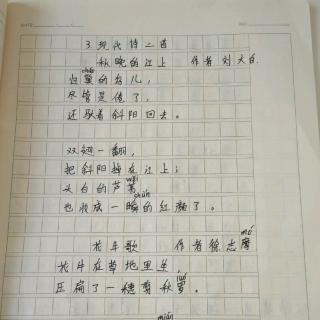 3.现代诗二首
秋晚的江上 作者刘大白
chǎo
白翼的鸟儿，
尽管是倦了，
还驮着斜阳回去。
双翅一翻，
把斜阳掉在江上；
wěi
头白的芦苇
shùn
也妆成一瞬的红颜了。
mó
花牛歌 作者徐志摩
花牛在草地里坐
luó
压扁了一穗剪秋罗。
mián